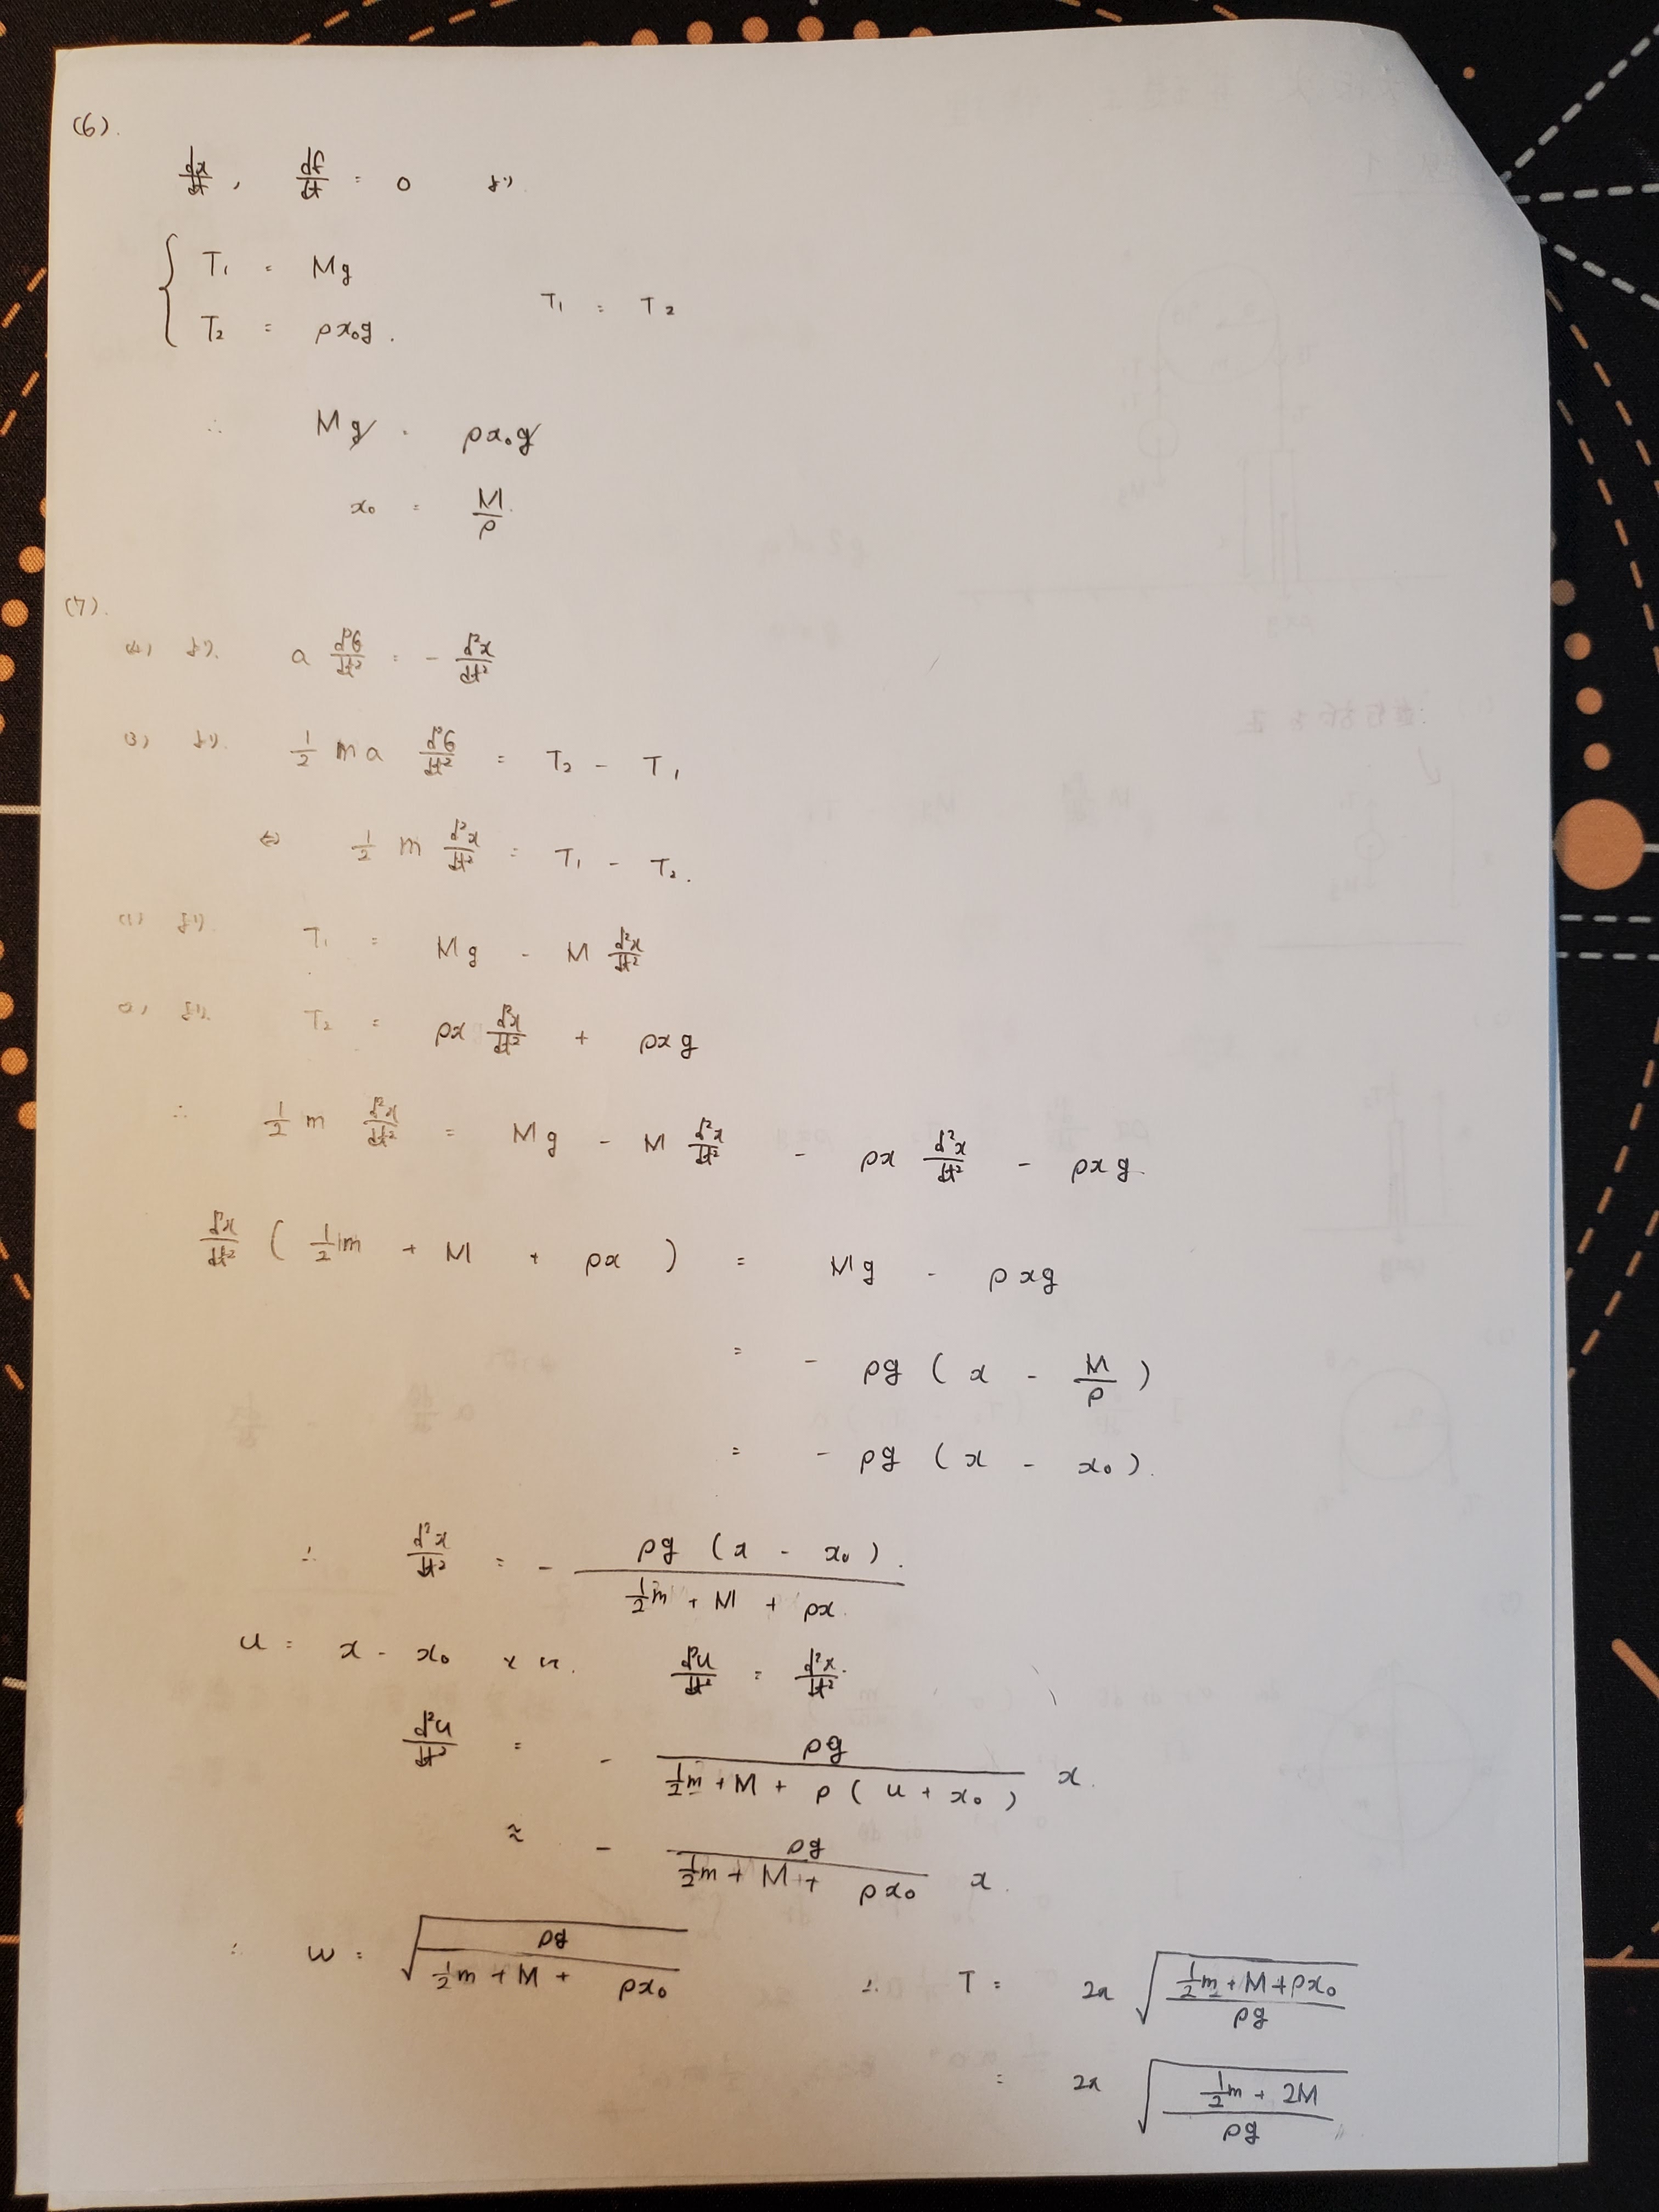 (6).
dx/dt, dθ/dt = 0 より
{ T₁ = Mg
T₂ = ρx₀g. T₁ = T₂
∴ Mg = ρx₀g
x₀ = M/ρ.
(7).
(4) より. a d²θ/dt² = - d²x/dt²
(3) より. 1/2 ma d²θ/dt² = T₂ - T₁
⇔ 1/2 m d²x/dt² = T₁ - T₂.
(1) より. T₁ = Mg - M d²x/dt²
(2) より. T₂ = ρx d²x/dt² + ρxg
∴ 1/2 m d²x/dt² = Mg - M d²x/dt² - ρx d²x/dt² - ρxg.
d²x/dt² ( 1/2 m + M + ρx ) = Mg - ρxg
= - ρg ( x - M/ρ )
= - ρg ( x - x₀ ).
∴ d²x/dt² = - ρg ( x - x₀ ) / (1/2 m + M + ρx).
u = x - x₀ とし. d²u/dt² = d²x/dt².
d²u/dt² = - ρg / (1/2 m + M + ρ ( u + x₀ )) x.
≈ - ρg / (1/2 m + M + ρx₀) x.
∴ ω = √(ρg / (1/2 m + M + ρx₀)) ∴ T = 2π √((1/2 m + M + ρx₀) / ρg)
= 2π √((1/2 m + 2M) / ρg) 〃